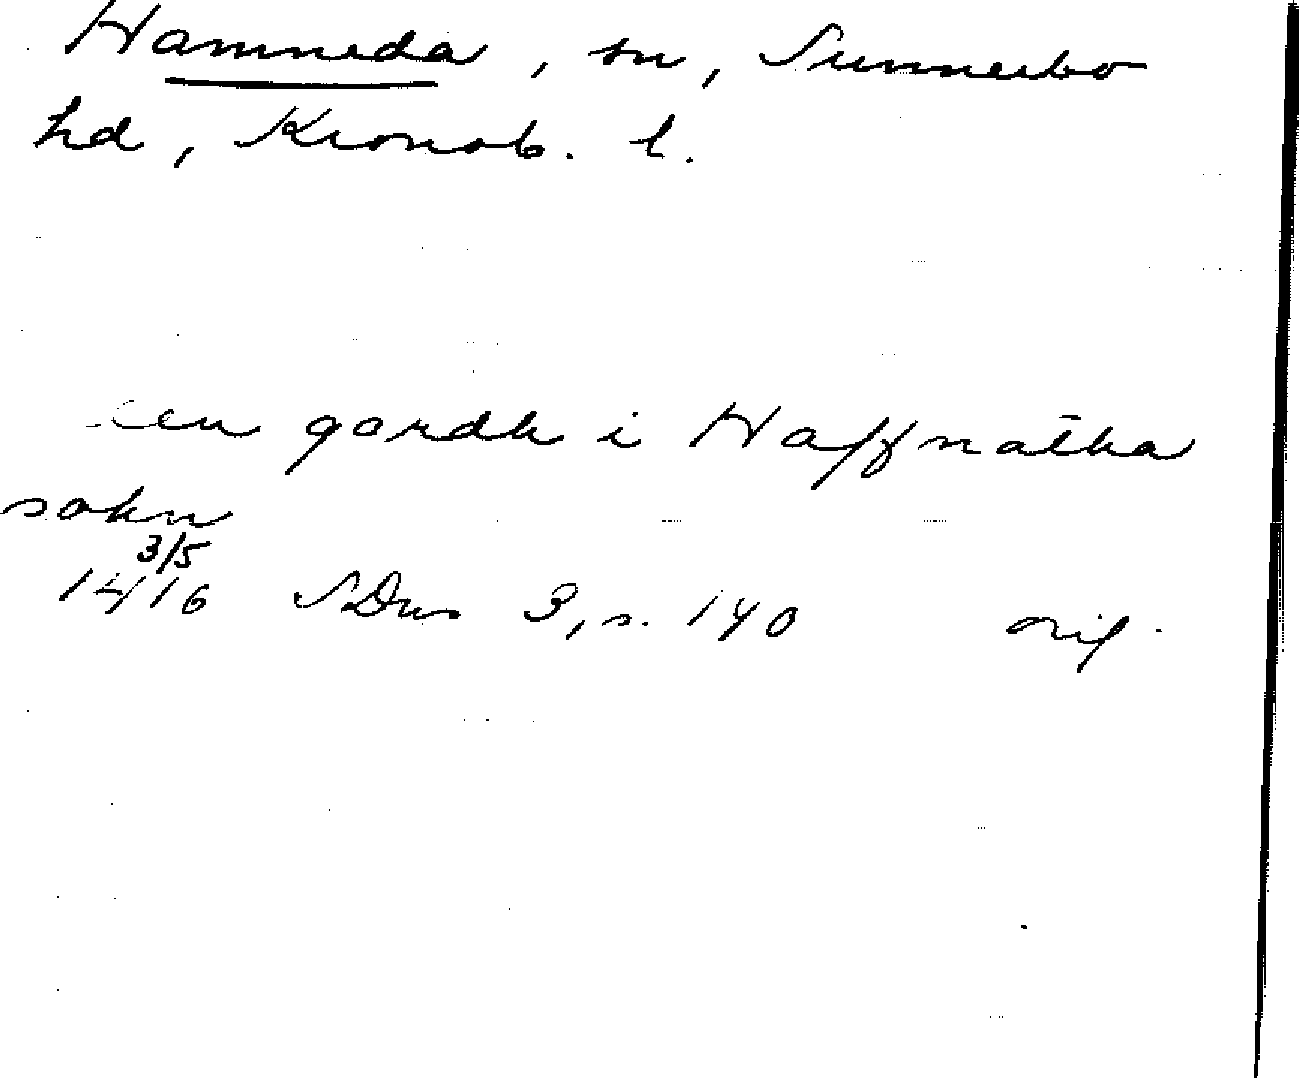 Hamneda, sn, Sunnerbo
hd, Kronob. l.
een gardh i Haffnatha
sokn
3/5
1416 SDns 3, s. 140 orig.